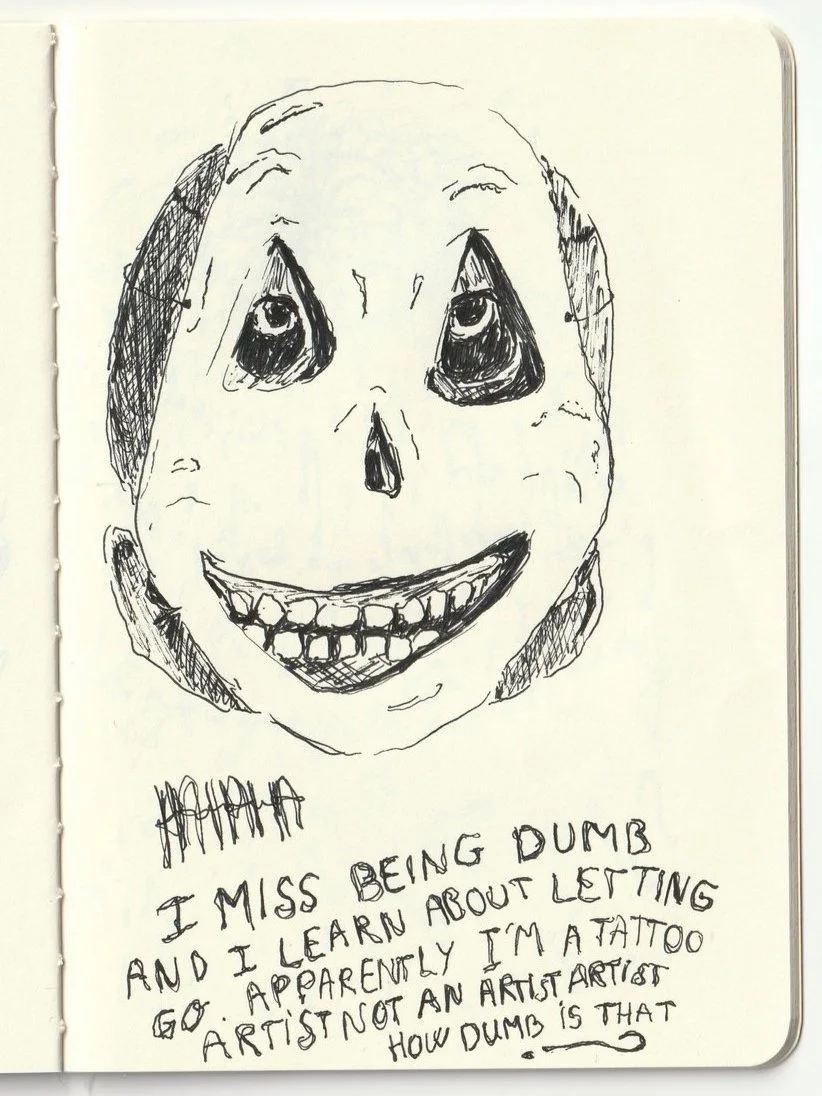 HAHAHA
I MISS BEING DUMB
AND I LEARN ABOUT LETTING
GO. APPARENTLY I'M A TATTOO
ARTIST NOT AN ARTIST ARTIST
HOW DUMB IS THAT